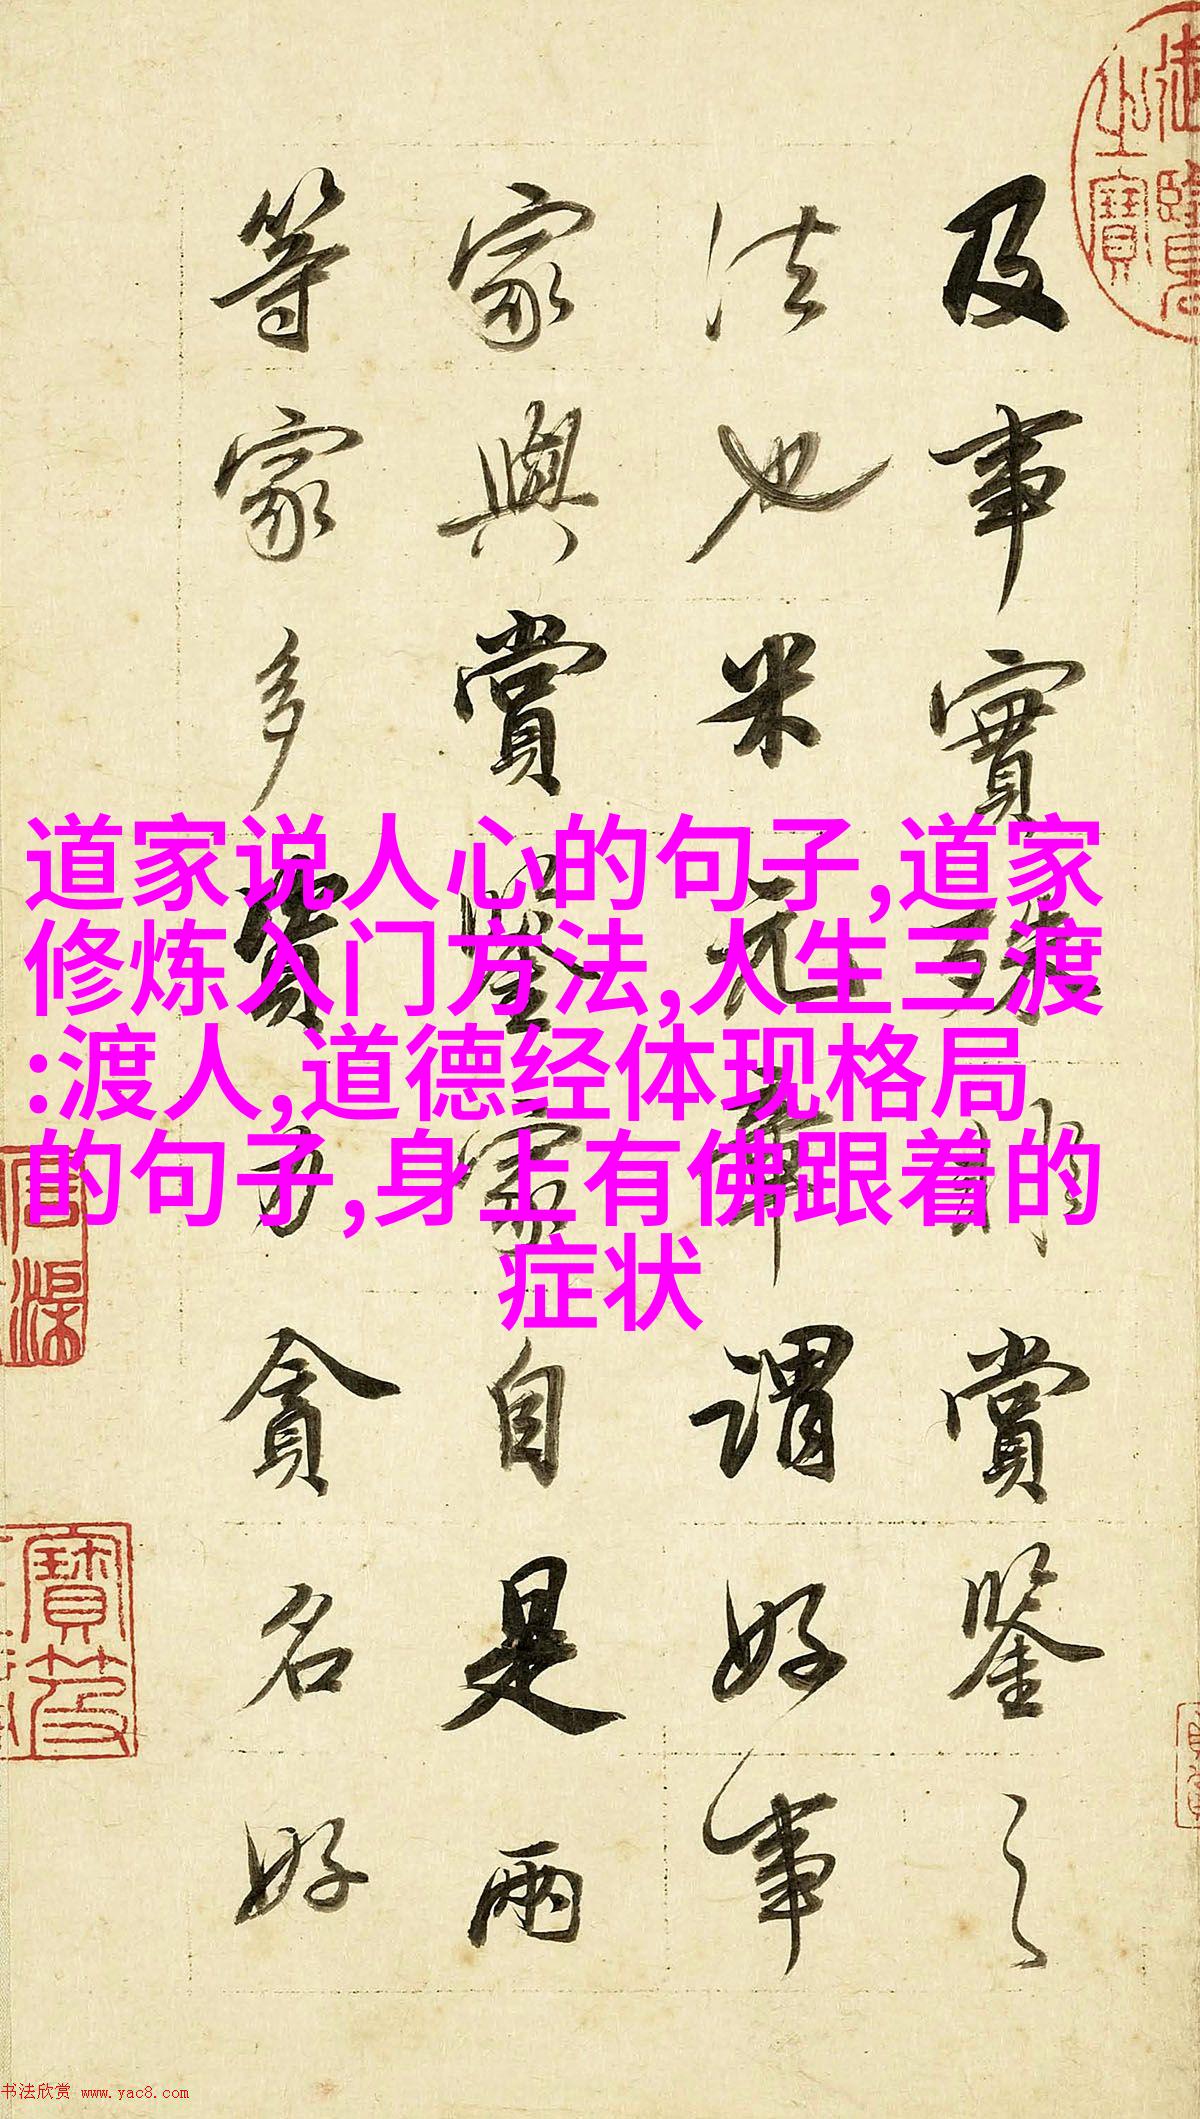 道家说人心的句子,道家
修炼入门方法,人生三渡
:渡人,道德经体现格局
的句子,身上有佛跟着的
症状
及事實殊賞鑒之
法也米元章謂好事
家與賞鑒家自是兩
等家多資力貪名好
书法欣赏 www.yac8.com